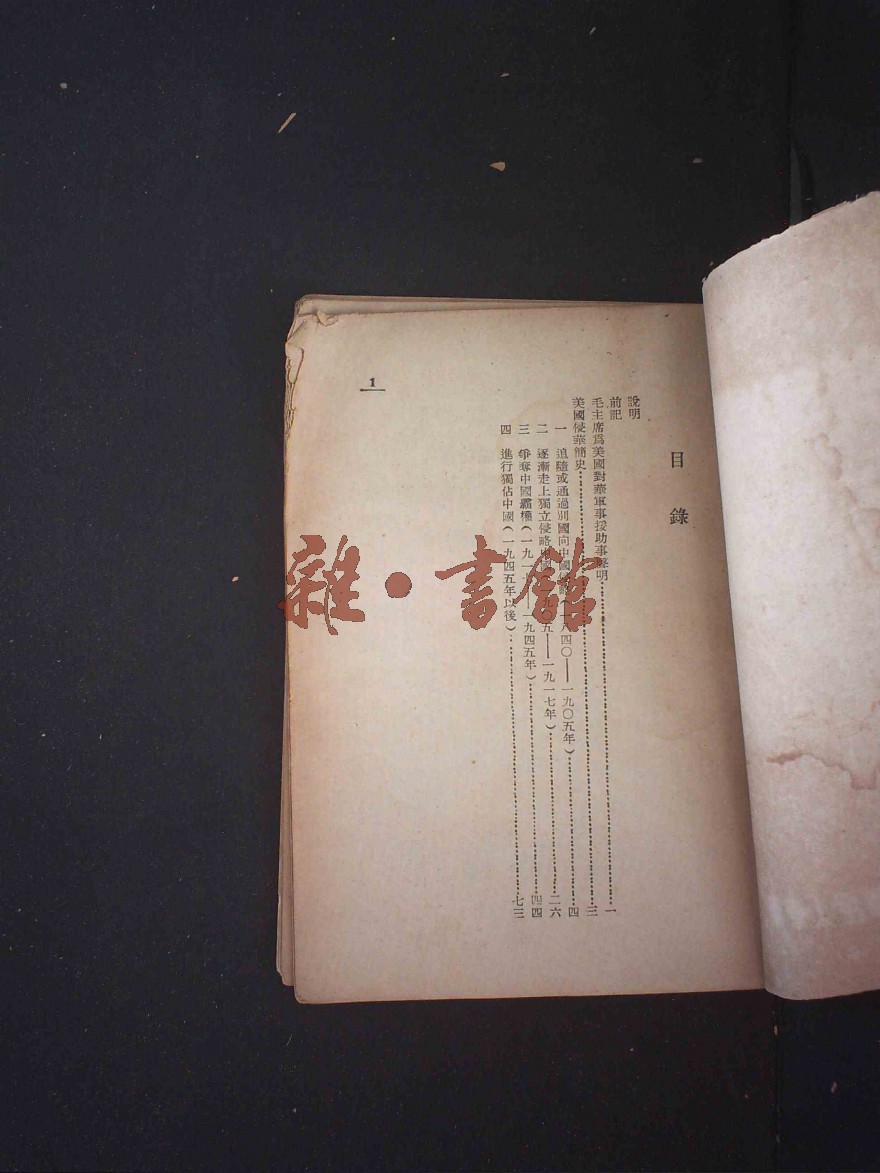 目錄
說明
前記
毛主席爲美國對華軍事援助事聲明……一
美國侵華簡史……三
一 追隨或通過別國向中國侵略(一八四〇——一九〇五年)……四
二 逐漸走上獨立侵略中國 九〇五——一九一七年)……二六
三 爭奪中國霸權(一九一 ——一九四五年)……四四
四 進行獨佔中國(一九四五年以後)……七三
1
雜·書館